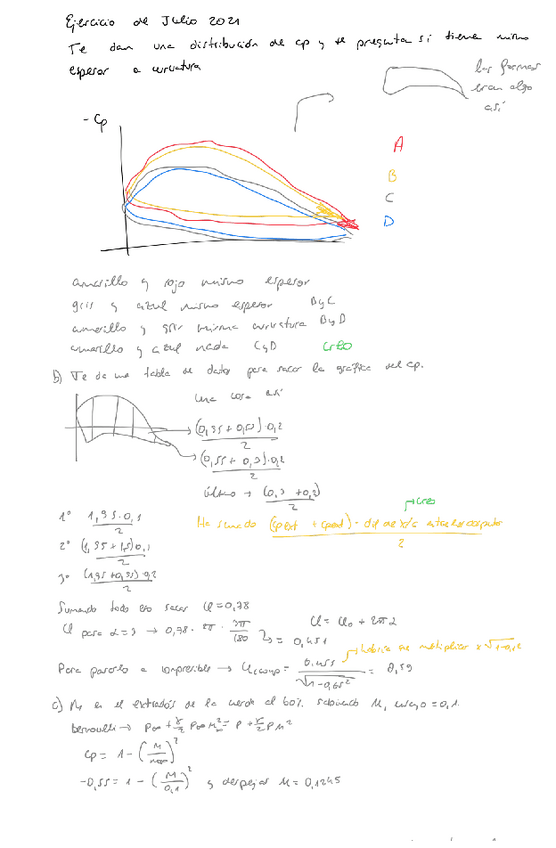 Ejercicio de Julio 2021
Te dan una distribución de cp y te pregunta si tiene mismo
espesor o curvatura
las formas
eran algo
así
- Cp
A
B
C
D
amarillo y rojo mismo espesor
gris y azul mismo espesor B y C
amarillo y gris misma curvatura B y D
amarillo y azul nada C y D creo
b) Te da una tabla de datos para sacar la gráfica del cp.
Una cosa así
(0,35 + 0,55) · 0,2 / 2
(0,55 + 0,3) · 0,2 / 2
Último → (0,3 + 0,2) / 2
1º 1,95 · 0,1 / 2
2º (1,95 + 1,5) 0,1 / 2
3º (1,95 + 0,95) · 0,2 / 2
creo
Ha sumado (cp ext + cp ) - / 2
Sumando todo eso sacas Cl = 0,78
Cl para α = 3 → 0,98 · 2π · 3π / 180 = 0,451
Cl = Cl0 + 2π α
habría que multiplicar x √1-0,1²
Para pasarlo a compresible → Cl comp = 0,455 / √1-0,65² = 0,59
c) M en el extradós de la cuerda al 60%. sabiendo M, = 0,1.
bernoulli → P∞ + γ/2 P∞ M∞² = P + γ/2 P M²
Cp = 1 - (M / M∞)²
-0,55 = 1 - (M / 0,1)² y despejar M = 0,1245